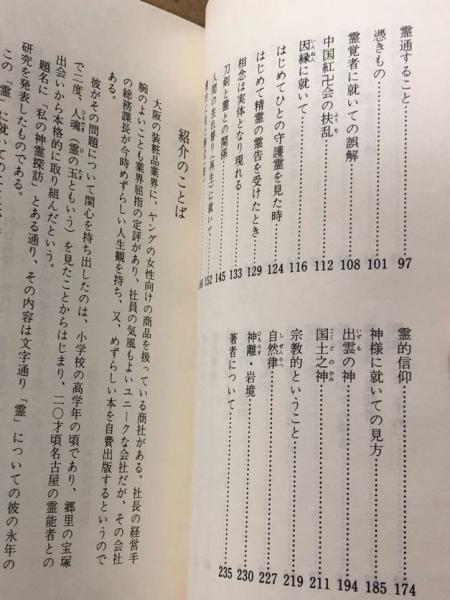 霊通すること……97
憑きもの……101
霊覚者に就いての誤解……108
中国紅卍会の扶乱……112
因縁に就いて……116
はじめてひとの守護霊を見た時……124
はじめて精霊の霊告を受けたとき……129
相念は実体となり現れる……133
刀剣と霊との関係……145
人間の生れ替り(再生)に就いて……152
霊的信仰……174
神様に就いての見方……185
出雲の神……194
国土之神……211
宗教的ということ……219
自然律……227
神籬・岩境……230
著者について……235
紹介のことば
大阪の装粧品業界に、ヤングの女性向けの商品を扱っている商社がある。社長の経営手
腕のよいことも業界屈指の定評があり、社員の気風もよいユニークな会社だが、その会社
の総務課長が今時めずらしい人生観を持ち、又、めずらしい本を自費出版するというので
ある。
彼がその問題について関心を持ち出したのは、小学校の高学年の頃であり、郷里の宝塚
で二度、人魂(霊の玉ともいう)を見たことからはじまり、二〇才頃名古屋の霊能者との
出会いから本格的に取り組んだという。
題名に「私の神霊探訪」とある通り、その内容は文字通り「霊」についての彼の永年の
研究を発表したものである。
この「霊」に就いての